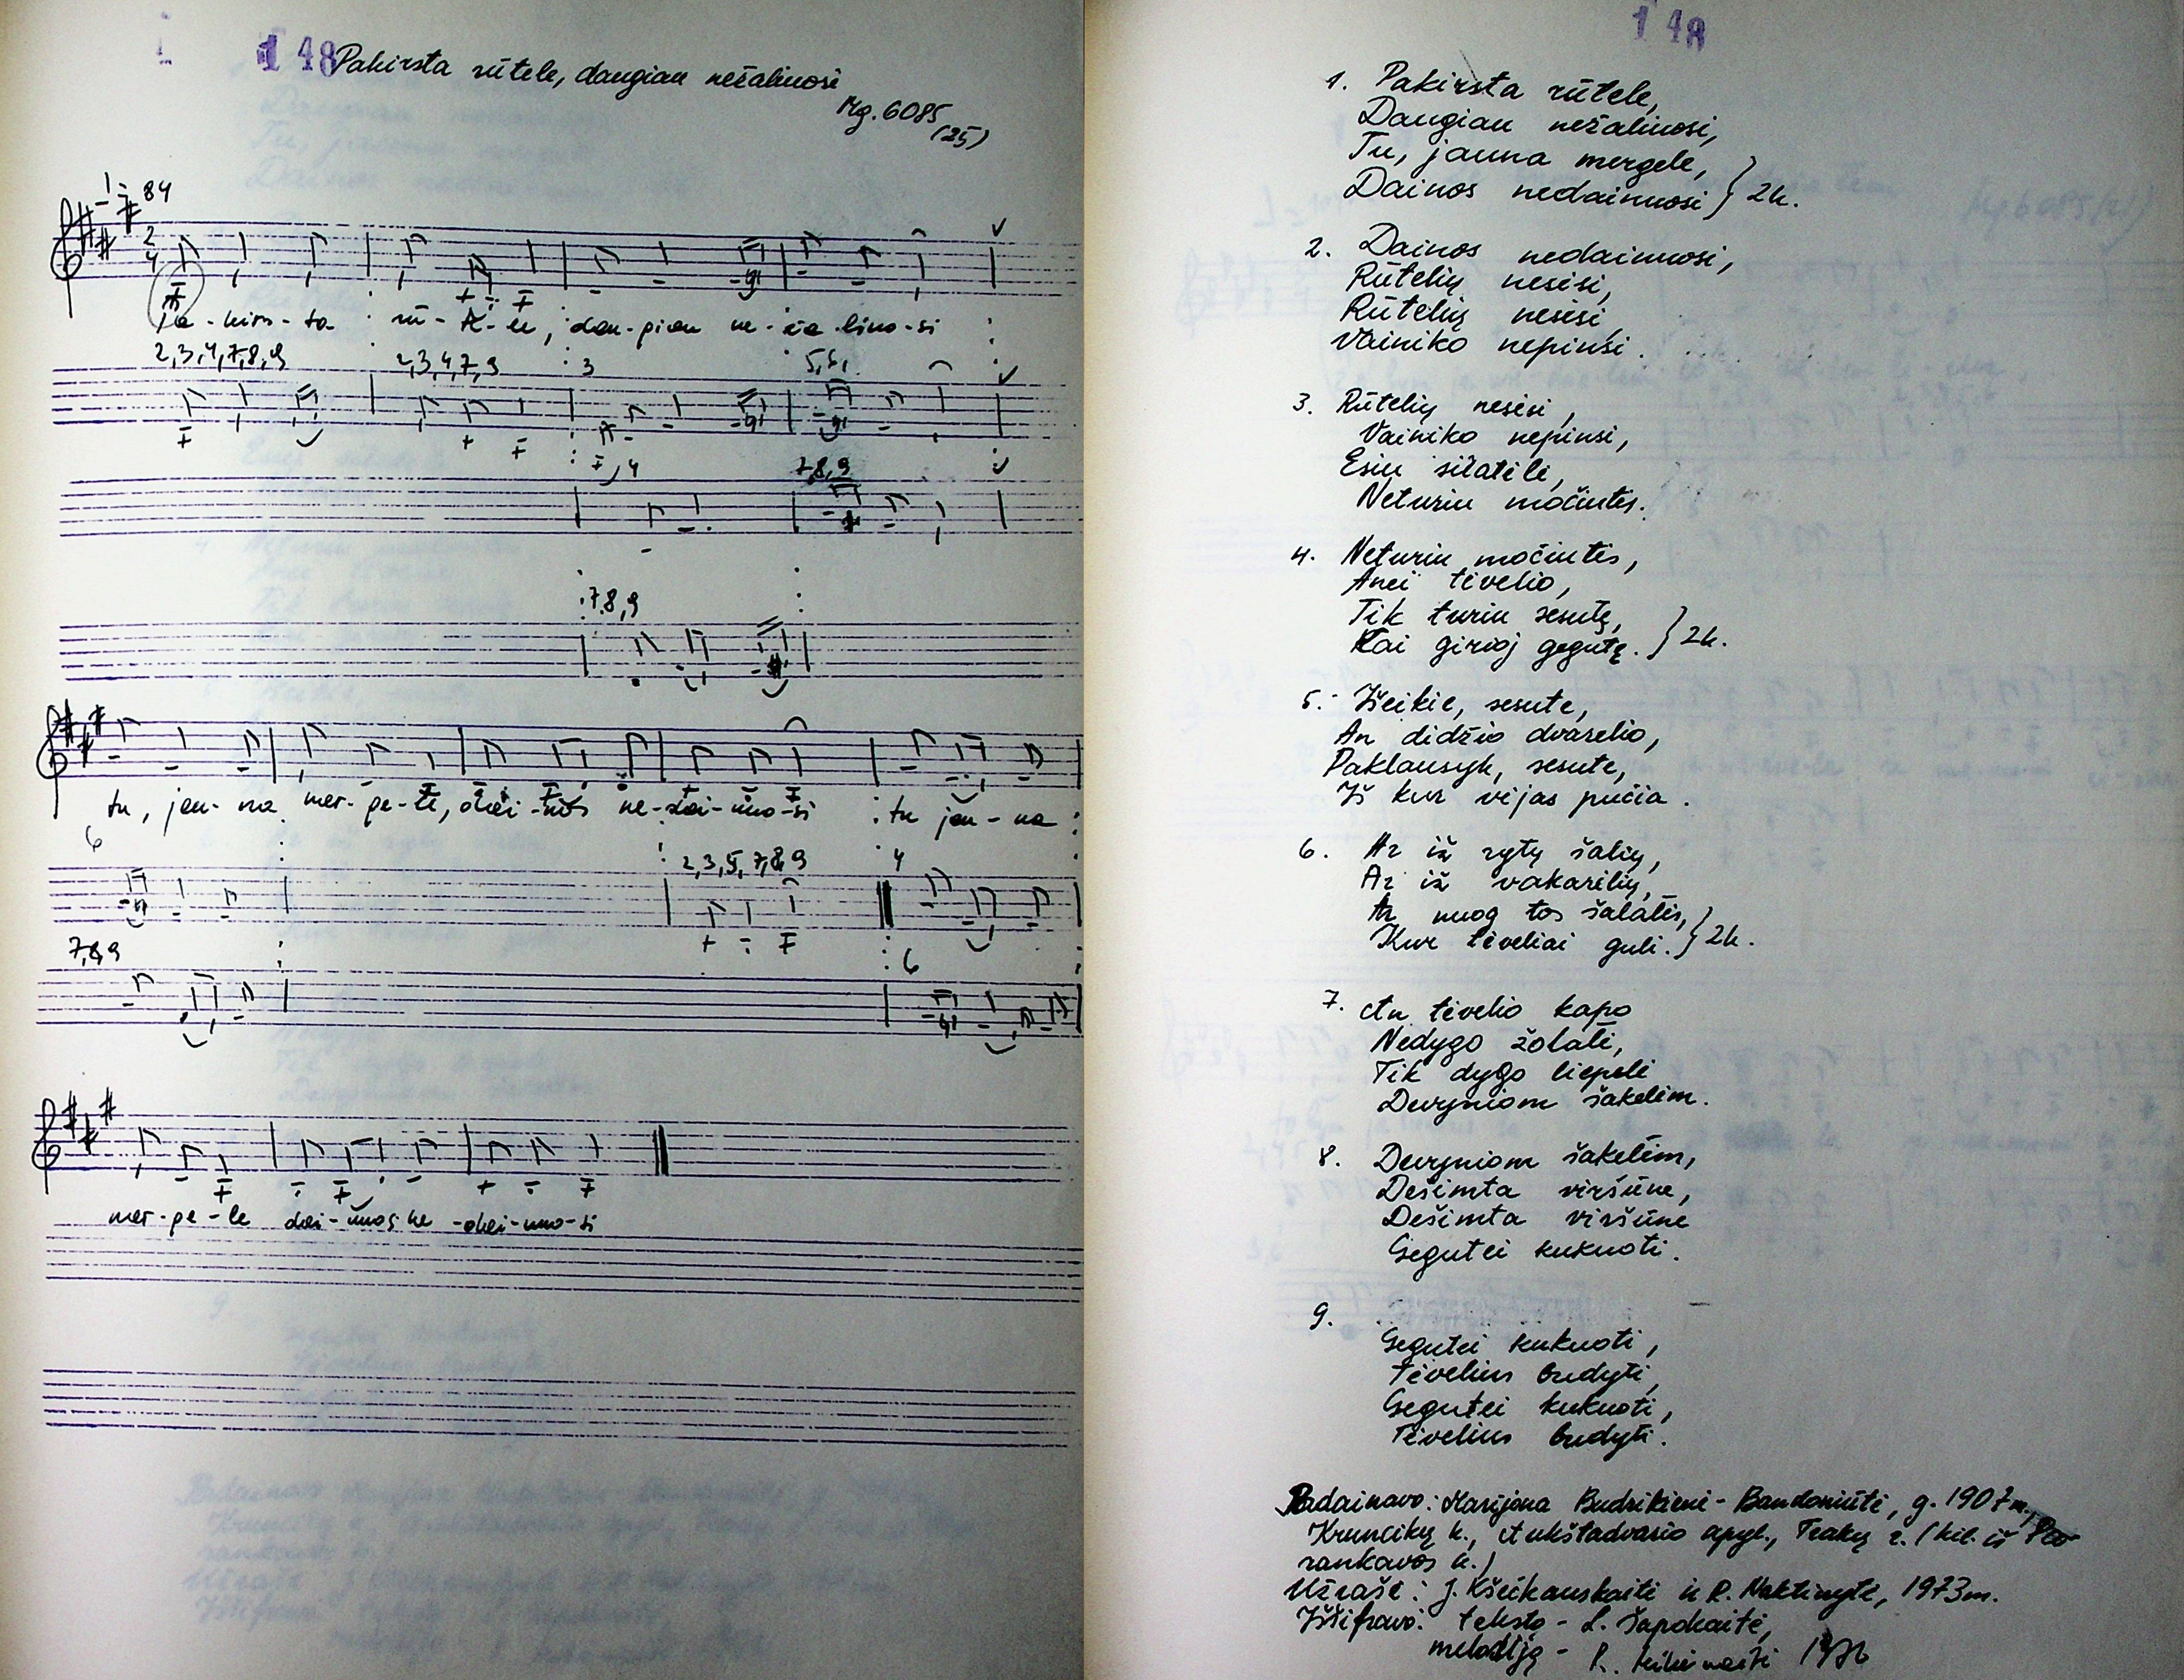 148
Pakirsta rūtele, daugiau nežaliuosi
Mg. 6085
(25)
84
2
4
Pa-kirs-ta rū-te-le, dau-giau ne-ža-liuo-si
2,3,4,7,8,9 2,3,4,7,9 3 5,6,
4 7,8,9
7,8,9
tu, jau-na mer-ge-le, dai-nos ne-dai-nuo-si tu jau-na
6
2,3,5,7,8,9 4
7,8,9 6
mer-ge-le dai-nos ne-dai-nuo-si
148
1. Pakirsta rūtele,
Daugiau nežaliuosi,
Tu, jauna mergele,
Dainos nedainuosi } 2k.
2. Dainos nedainuosi,
Rūtelių nesėsi,
Rūtelių nesėsi
Vainiko nepinsi.
3. Rūtelių nesėsi,
Vainiko nepinsi,
Esiu siratėlė,
Neturiu močiutės.
4. Neturiu močiutės,
Anei tėvelio,
Tik turiu sesutę,
Kai girioj gegutę. } 2k.
5. Išeikie, sesute,
An didžio dvarelio,
Paklausyk, sesute,
Iš kur vėjas pučia.
6. Ar iš rytų šalių,
Ar iš vakarėlių,
Ar nuog tos šalalės,
Kur tėveliai guli. } 2k.
7. An tėvelio kapo
Nedygo žolalė,
Tik dygo liepelė
Devyniom šakelėm.
8. Devyniom šakelėm,
Dešimta viršūne,
Dešimta viršūne
Gegutei kukuoti.
9.
Gegutei kukuoti,
Tėvelius budyti,
Gegutei kukuoti,
Tėvelius budyti.
Padainavo: Marijona Budrikienė-Bandoniūtė, g. 1907 m.,
Kruncikų k., Aukštadvario apyl., Trakų r. (kil. iš
rankavos k.)
Užrašė: J. Kšeikauskaitė ir R. Naktinytė, 1973 m.
Iššifravo: tekstą - L. Šapokaitė,
melodiją - R. 1976